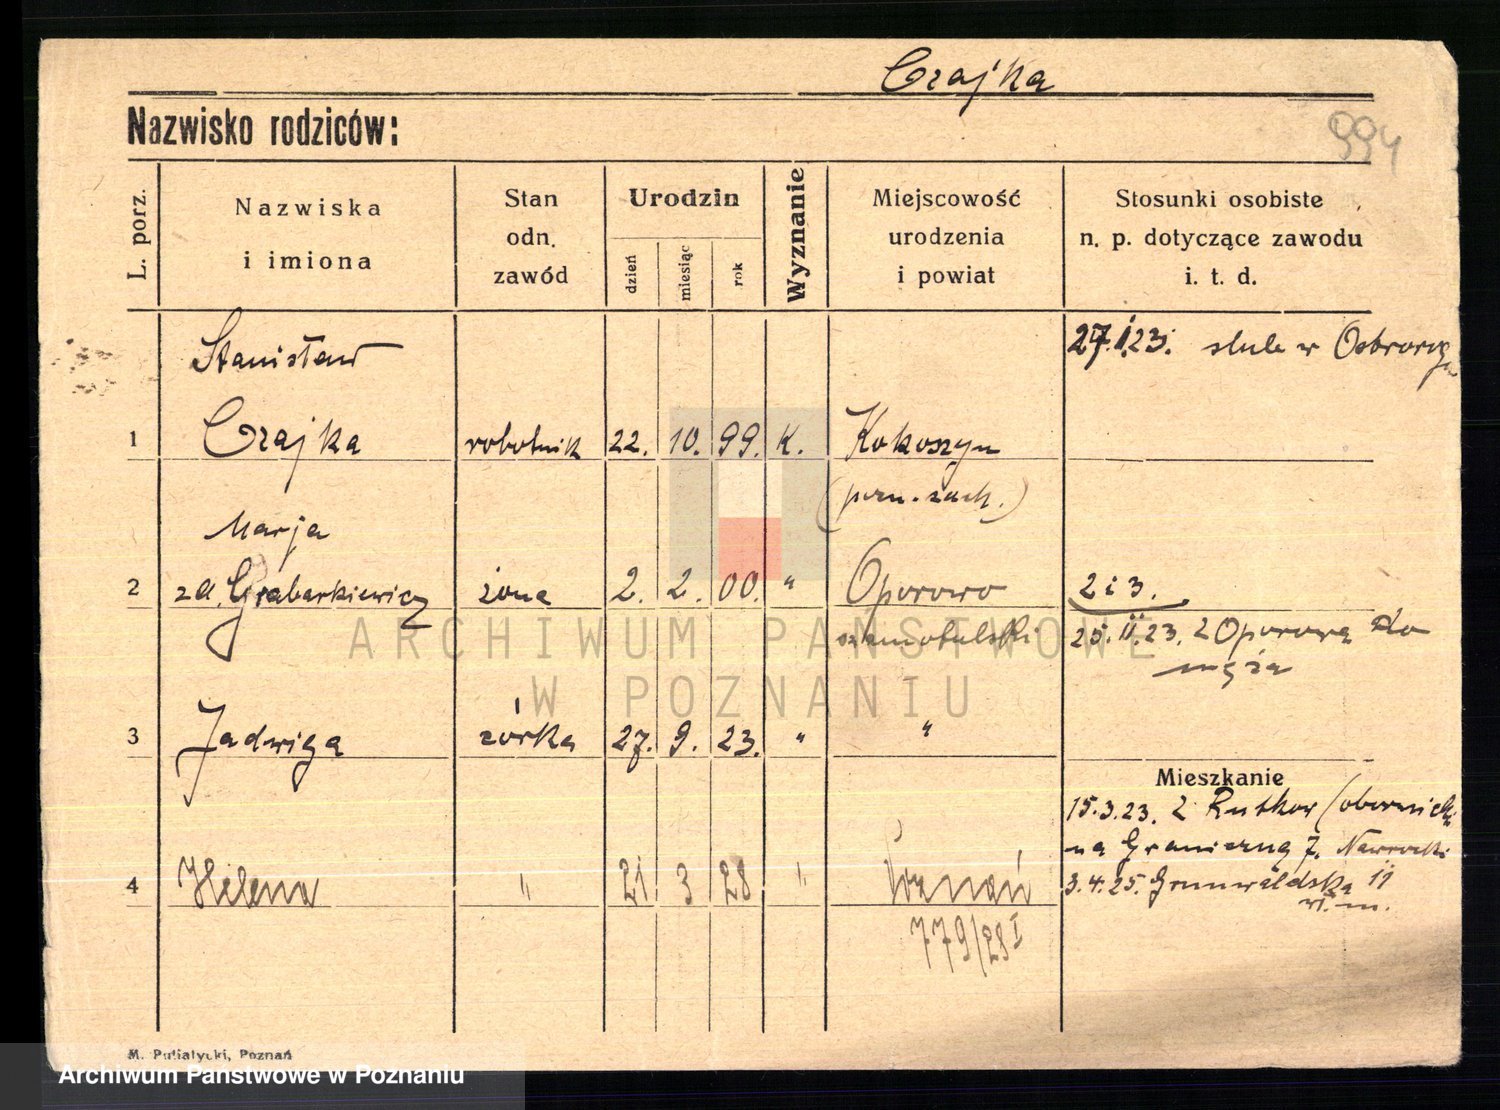 Czajka
Nazwisko rodziców:
994
L. porz.
Nazwiska
i imiona
Stan
odn.
zawód
Urodzin
dzień
miesiąc
rok
Wyznanie
Miejscowość
urodzenia
i powiat
Stosunki osobiste
n. p. dotyczące zawodu
i. t. d.
Stanisław
27.I.23. ślub w
1 Czajka robotnik 22. 10. 99. K. Kokoszyn
Marja
2 zd. Grabarkiewicz żona 2. 2. 00. " Oporowo 2 i 3.
szamotulski 25.II.23. z Oporowa do
męża
ARCHIWUM PAŃSTWOWE
W POZNANIU
3 Jadwiga córka 27. 9. 23. " "
Mieszkanie
15.3.23. z
na Graniczną 7. Nawrocki
4 Helena " 21 3 28 " Poznań
3.4.25. Grunwaldska 11
w. m.
779/28 I
M. Putiatycki, Poznań
Archiwum Państwowe w Poznaniu